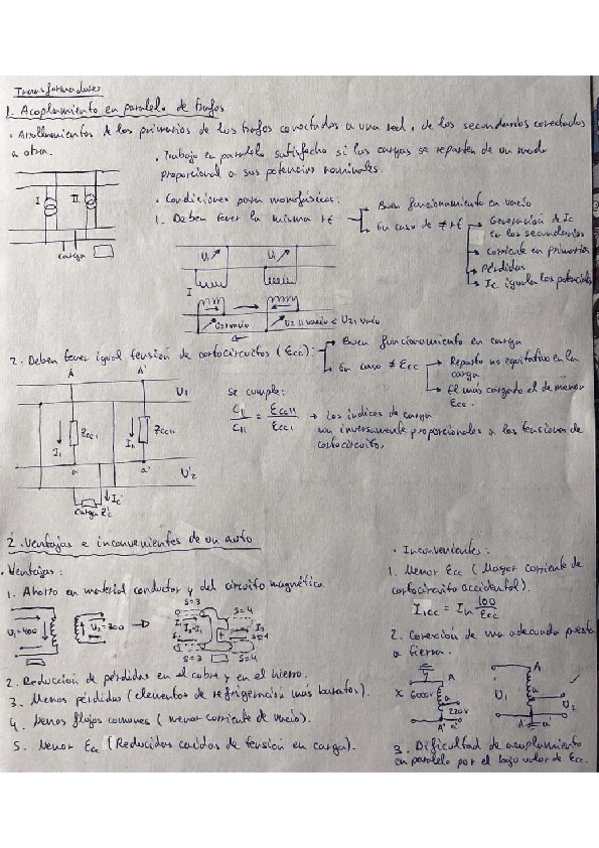 Transformadores
1. Acoplamiento en paralelo de trafos
· Arollamientos de los primarios de los trafos conectados a una red, de los secundarios conectados
a otra.
· Trabajo en paralelo satisfecho si las cargas se reparten de un modo
proporcional a sus potencias nominales.
I II
Carga
· Condiciones para monofásicos:
1. Deben tener la misma rt
Buen funcionamiento en vacío
En caso de ≠ rt
Generación de Ic
en los secundarios
Corriente en primarios
Pérdidas
Ic iguala los potenciales
U1 U1
I
U2I vacío U2 II vacío < U2I vacío
2. Deben tener igual tensión de cortocircuitos (Ecc):
Buen funcionamiento en carga
En caso ≠ Ecc
Reparto no equitativo en la
carga
El más cargado el de menor
Ecc.
A A'
U1
ZccI ZccII
II III
a a'
U'2
Ic'
Carga Z'c
Se cumple:
CI/CII = EccII/EccI → Los índices de carga
son inversamente proporcionales a las tensiones de
cortocircuito.
2. Ventajas e inconvenientes de un auto
· Ventajas:
1. Ahorro en material conductor y del circuito magnético.
U1=400 U2=300
S=3 S=4
S=3 S=4
2. Reducción de pérdidas en el cobre y en el hierro.
3. Menos pérdidas (elementos de refrigeración más baratos).
4. Menos flujos comunes (menor corriente de vacío).
5. Menor Ecc (Reducidas caídas de tensión en carga).
· Inconvenientes:
1. Menor Ecc (Mayor corriente de
cortocircuito accidental).
I1cc = In 100/Ecc
2. Conexión de una adecuada puesta
a tierra.
X 6000V a 220V A' a'
A U1 a U2 A' a'
3. Dificultad de acoplamiento
en paralelo por el bajo valor de Ecc.